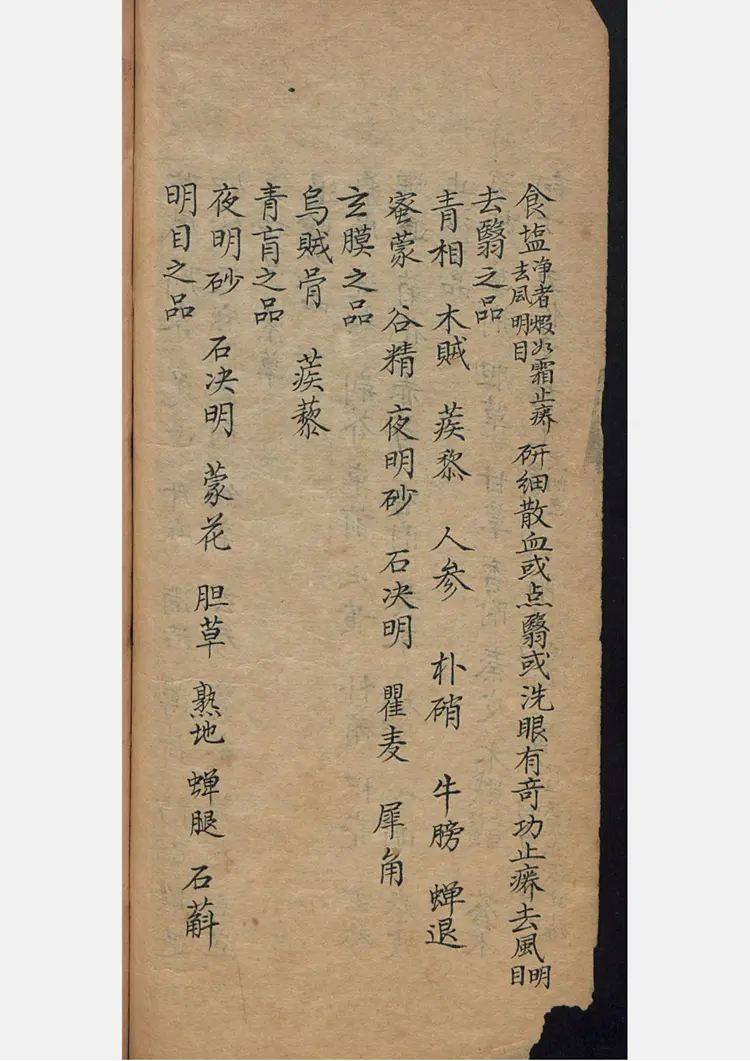 食塩净者煆如霜止痹去風明目研细散血或点翳或洗眼有竒功止痹去風明目
去翳之品
青相 木賊 蒺黎 人参 朴硝 牛膀 蝉退
蜜蒙 谷精 夜明砂 石决明 瞿麦 犀角
玄膜之品
烏賊骨 蒺藜
青肓之品
夜明砂 石决明 蒙花 胆草 熟地 蝉腿 石斛
明目之品